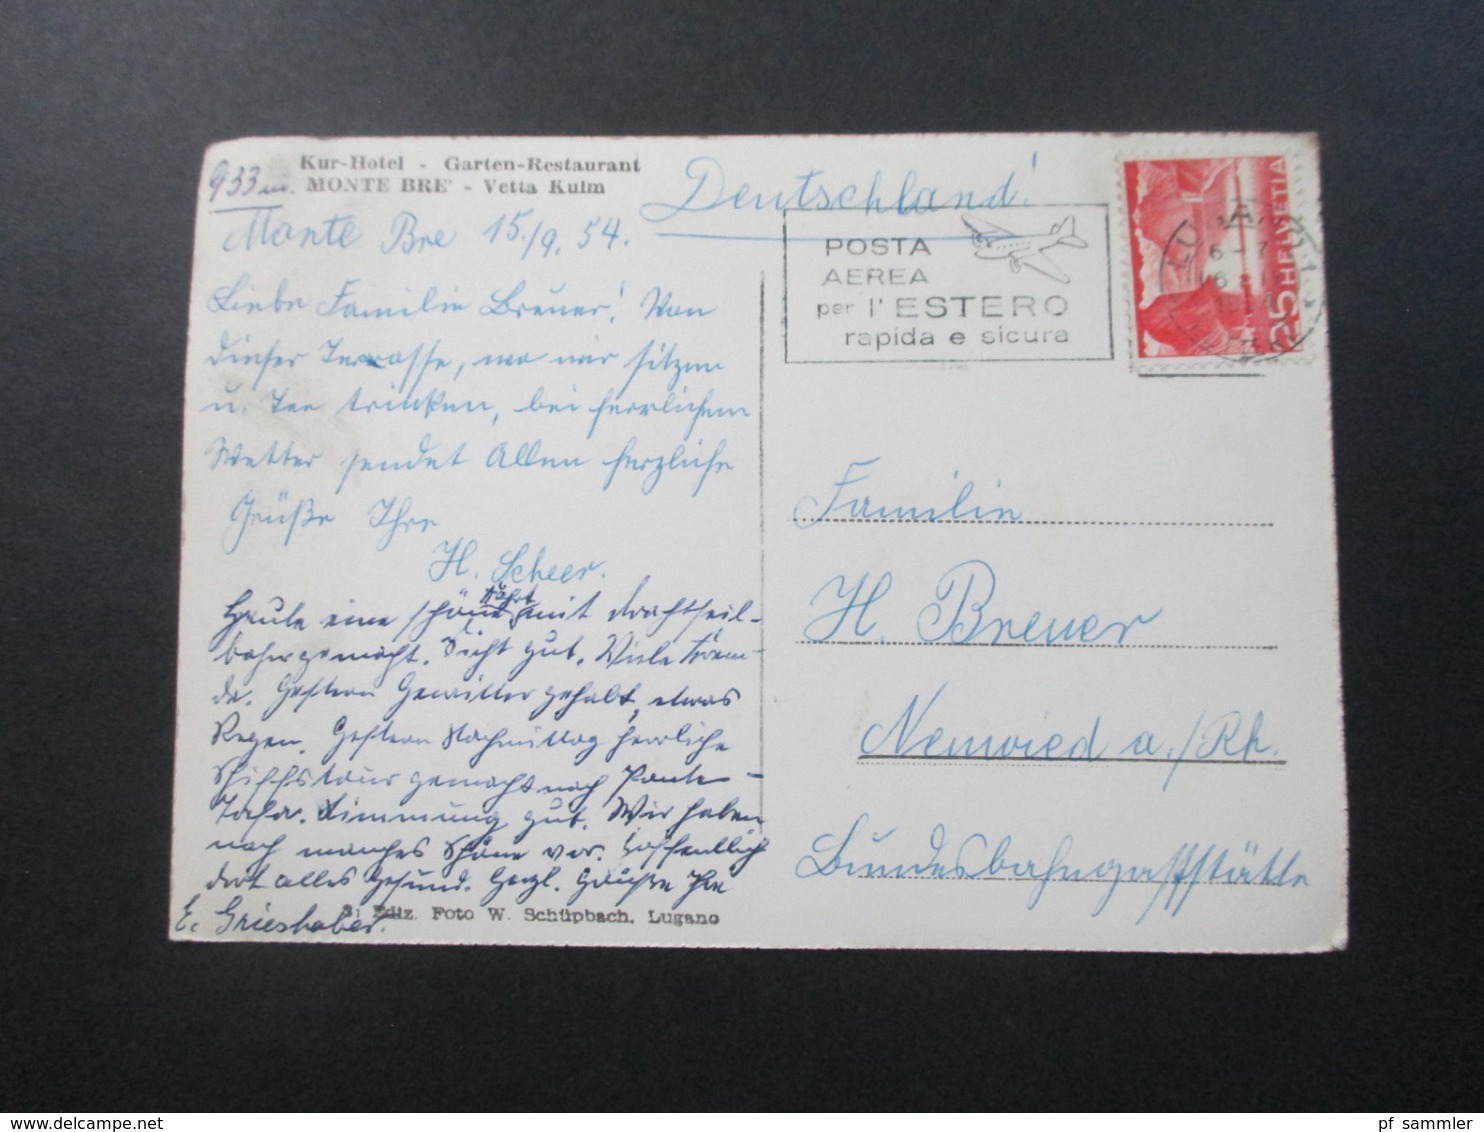 Kur-Hotel - Garten-Restaurant
933 m. MONTE BRE' - Vetta Kulm
Deutschland!
Monte Bre 15./9. 54.
Liebe Familie Breuer! Von
dieser Terrasse, wo wir sitzen
u. Tee trinken, bei herrlichem
Wetter sendet Allen herzliche
Grüße Ihre
H. Scheer.
Heute eine schöne Fahrt mit Drachtseil-
bahn gemacht. Sicht gut. Viele Frem-
de. Gestern Gewitter gehabt, etwas
Regen. Gestern Nachmittag herrliche
Schiffstour gemacht nach Ponte-
Tresa. Stimmung gut. Wir haben
noch manches Schöne vor. Hoffentlich
dort alles gesund. Herzl. Grüße Ihre
E. Grieshaber.
Ediz. Foto W. Schüpbach, Lugano
POSTA
AEREA
per l'ESTERO
rapida e sicura
25 HELVETIA
Familie
H. Breuer
Neuwied a./Rh.
Bundesbahngaststätte